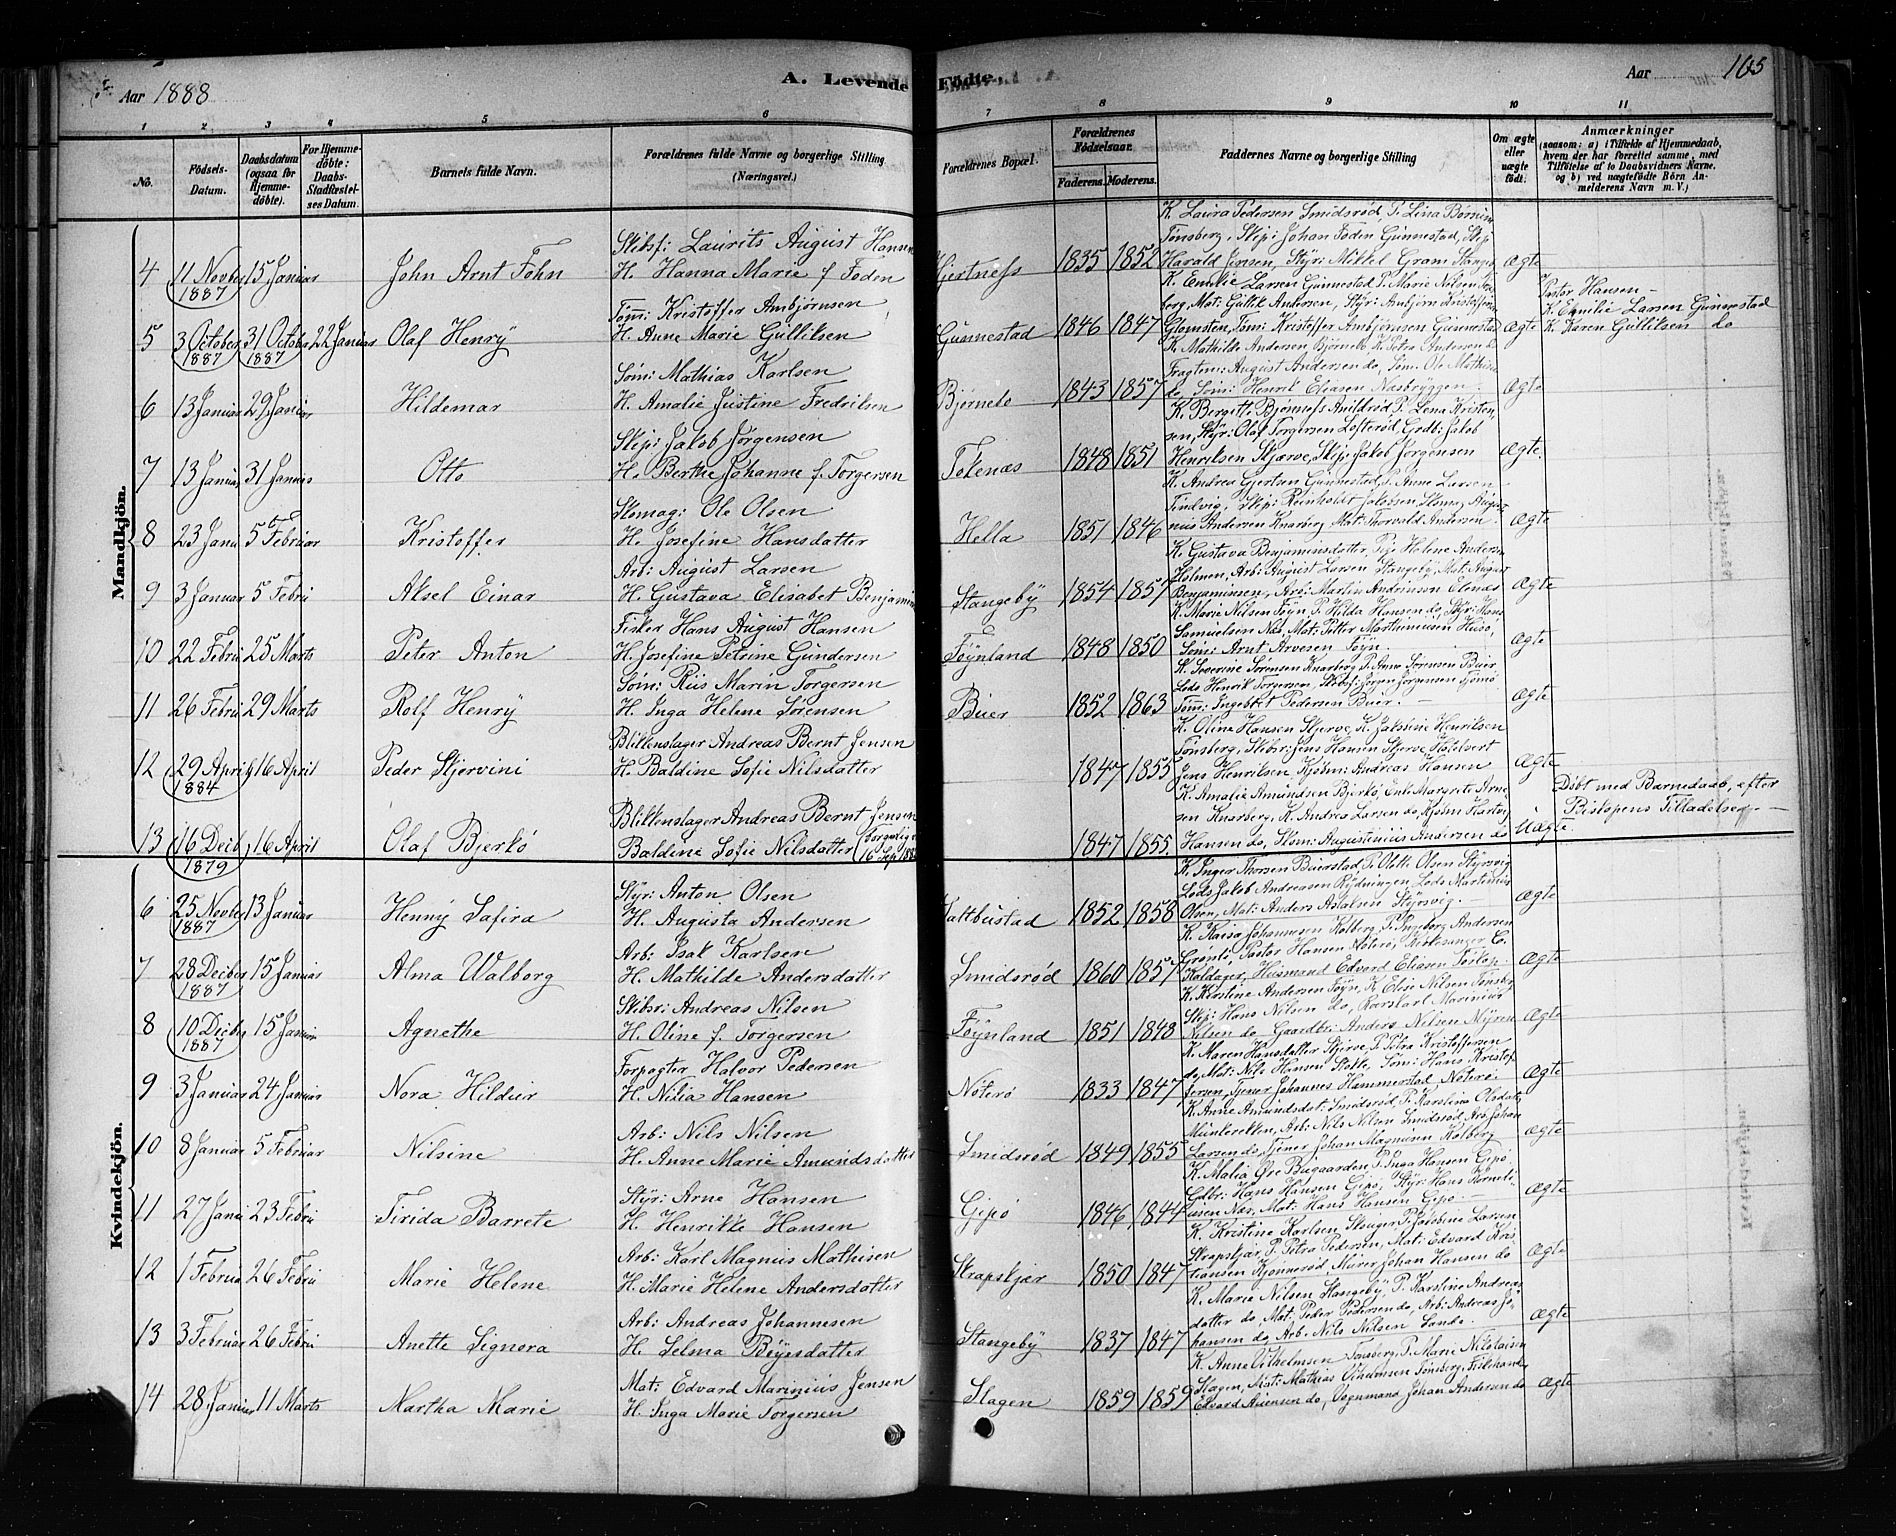 Aar 1888
A. Levende Fødte,
Aar 165
1 2 3 4 5 6 7 8 9 10 11
No.
Fødsels-Datum.
Daabsdatum (ogsaa for Hjemmedöbte).
For Hjemmedöbte: Daabs-Stadfæstelses Datum.
Barnets fulde Navn.
Forældrenes fulde Navne og borgerlige Stilling (Næringsvei.)
Forældrenes Bopæl.
Forældrenes Födselsaar.
Faderens. Moderens.
Faddernes Navne og borgerlige Stilling
Om ægte eller uægte født.
Anmærkninger
(saasom: a) i Tilfælde af Hjemmedaab, hvem der har forrettet samme, med Tilföielse af to Daabsvidners Navne, og b) ved uægtefödte Börn Anmelderens Navn m. V.)
Mandkjön.
4 11 Novber 1887 15 Januar John Arnt Föhn
Skibsf: Laurits August Hansen
H. Hanna Marie f. Foden
Hjertness 1835 1852
K. Laura Pedersen Smidsrød, P. Lina
Tønsberg, Skip: Johan Foden Gunnestad, Skip
Harald Jensen, Styr: Mikkel Gram
Ægte
5 3 October 1887 31 Octobr 1887 22 Januar Olaf Henry
Tøm: Kristoffer Ambjørnsen
H. Anne Marie Gulliksen
Gunnestad 1846 1847
K. Emilie Larsen Gunnestad P. Marie Nilsen
berg, Mat: Gullik Andersen, Styr: Ambjørn Kristoffersen
Tøm: Kristoffer Ambjørnsen Gunnestad
Ægte
Pastor Hansen –
K. Emilie Larsen Gunnestad
K. Karen Gullilsen do
6 13 Januar 29 Januar Hildemar
Søm: Mathias Karlsen
H. Amalie Justine Fredriksen
Bjørnebo 1843 1857
K. Mathilde Andersen Bjørnebo, K. Petra Andersen
August Andersen do, Søm: Ole Mathisen
do, Søm: Henrik Eliasen Næsbryggen.
Ægte
7 13 Januar 31 Januar Otto
Skip: Jakob Jørgensen
H. Berthe Johanne f. Torgersen
Tokenæs 1848 1851
K. Bergitte Bjønness P. Lena Kristen
sen, Styr: Olaf Torgersen Lofterød, Godb: Jakob
Henriksen Skjærve, Skip: Jakob Jørgensen
Ægte.
8 23 Janu 5te Februar Kristoffer
Skomag: Ole Olsen
H. Josefine Hansdatter
Hella 1851 1846
K. Andrea Gjertsen Gunnestad, P. Anne Larsen
Skip: Reinholdt Jakobsen
Andersen Knarberg Mat: Thorvald Andersen.
Ægte
9 3 Januar 5 Febru Aksel Einar
Arb: August Larsen
H. Gustava Elisabet Benjamin
Stangeby 1854 1857
K. Gustava Benjaminsdatter, Pige Helene Andersen
Holmen, Arb: August Larsen Stangeby, Mat: August
Benjaminsen, Arb: Martin Andersen
Ægte
10 22 Febru 25 Marts Peter Anton
Fisker Hans August Hansen
H. Josefine Petrine Gundersen
Føynland 1848 1850
K. Marie Nilsen Føyn, P. Hilda Hansen do, Styr: Hans
Samuelsen Næs, Mat: Petter Marthiniusen Husø,
Søm: Arnt Arvesen Føyn.
Ægte
11 26 Febru 29 Marts Rolf Henry
Søm: Riis Marin Torgersen
H. Inga Helene Sørensen
Buer 1852 1863
K. Severine Sørensen Knarberg P. Anna Sørensen Buer
Lods Henrik Torgersen, Skibsf: Jørgen Jørgensen Tjømø
Tøm: Ingebret Pedersen Buer. –
Ægte
12 29 April 1884 16 April Peder Skjervini
Blikkenslager Andreas Bernt Jensen
H. Baldine Sofie Nilsdatter
1847 1855
K. Oline Hansen Skjerve, K. Jakobine Henriksen
Tønsberg, Skibsr: Jens Hansen Skjerve, Hotelvert
Jens Henriksen, Kjøbm: Andreas Hansen
Ægte
Döbt med Barnedaab, efter
Biskopens Tilladelse. –
13 16 Decb 1879 16 April Olaf Bjerkø
Blikkenslager Andreas Bernt Jensen
Baldine Sofie Nilsdatter
1847 1855
K. Amalie Amundsen Bjerkø, Enke Margrete Arne
sen Knarberg, K. Andrea Larsen do, Kjøbm
Hansen do, Skom: Augustinius Andersen do
Uægte.
Kvindekjön.
6 25 Novber 1887 13 Januar Henny Safira
Styr: Anton Olsen
H. Augusta Andersen
Kaltbustad 1852 1858
K. Inger Thorsen Buerstad, P. Olette Olsen Styrsvig
Lods Jakob Andreasen Rydningen, Lods Martinius
Olsen, Mat: Anders Aslaksen Styrsvig. –
Ægte
7 28 Decber 1887 15 Januar Alma Walborg
Arb: Isak Karlsen
H. Mathilde Andersdatter
Smidsrød 1860 1857
K. Kaisa Johannesen Kolberg, P. Ingeborg Andersen
Grønli, Pastor Hansen Nøterø, Kirkesanger C.
Kaldager, Husmand Edvard Eliasen
Ægte
8 10 Decbr 1887 15 Januar Agnethe
Skibsr: Andreas Nilsen
H. Oline f. Torgersen
Føynland 1851 1848
K. Kirstine Andersen Føyn, K. Elise Nilsen Tønsberg
Skip: Hans Nilsen do, Marinius
Nilsen do, Gaardbr: Anders Nilsen Myren
Ægte
9 3 Januar 24 Januar Nora Hildur
Forpagter Halvor Pedersen
H. Nilia Hansen
Nøterø 1833 1847
K. Maren Hansdatter Skjerve, P. Petra Kristoffersen
do, Mat: Nils Hansen Stokke, Søm: Hans Kristof
fersen, Tjener Johannes Hammerstad, Nøterø.
Ægte
10 8 Januar 5 Februar Nilsine
Arb: Nils Nilsen
H. Anne Marie Amundsdatter
Smidsrød 1849 1855
K. Anne Amundsdat: Smidsrød, P. Karolina Olsdat,
Munkerekken, Arb: Nils Nilsen Smidsrød, Arb: Johan
Larsen do, Tjener Johan Magnusen Kolberg
Ægte
11 27 Janu 23 Febru Firida Barrete
Styr: Arne Hansen
H. Henrikke Hansen
Gipø 1846 1844
K. Malia Øre Bugaarden, P. Inga Hansen Gipø
Gdbr: Hans Hansen Gipø, Styr: Hans Korneli-
usen Næs, Mat: Hans Hansen Gipø. –
Ægte
12 1 Februa 26 Febru Marie Helene
Arb: Karl Magnus Mathisen
H. Marie Helene Andersdatter
Skrapskjær 1850 1847
K. Kristine Karlsen, P. Jakobine Larsen
Skrapskjær, P. Petra Pedersen, Mat: Edvard Kris
tiansen Kjønnerød, Murer Johan Hansen do
Ægte
13 3 Februar 26 Febru Anette Signora
Arb: Andreas Johannesen
H. Selma Böyesdatter
Stangeby 1837 1847
K. Marie Nilsen Stangeby, P. Karstine Andreas
datter do, Mat: Peder Pedersen do, Arb: Andreas Jo-
hansen do, Arb: Nils Nilsen Sande.
Ægte
14 28 Januar 11 Marts Martha Marie
Mat: Edvard Marinius Jensen
H. Inga Marie Torgersen
Slagen 1859 1859
K. Anne Vilhelmsen Tønsberg, P. Marie Nikolaisen
Slagen, Mat: Mathias Vilhelmsen Tønsberg,
Edvard Asmussen do, Vognmand Johan Andersen do
Ægte